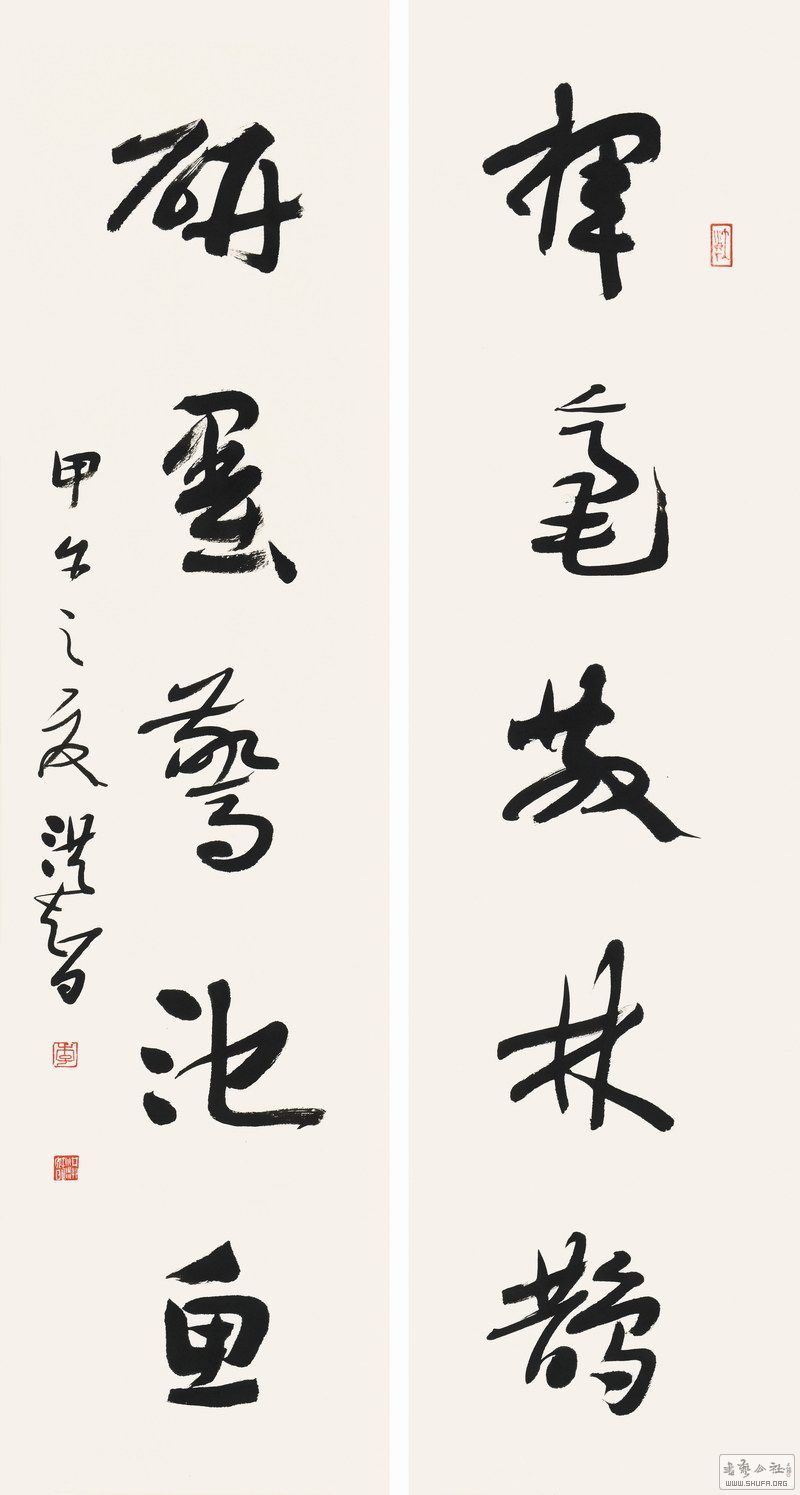 挥毫散林鹊
研墨惊池鱼
甲午之夏洪智
书艺公社
WWW.SHUFA.ORG